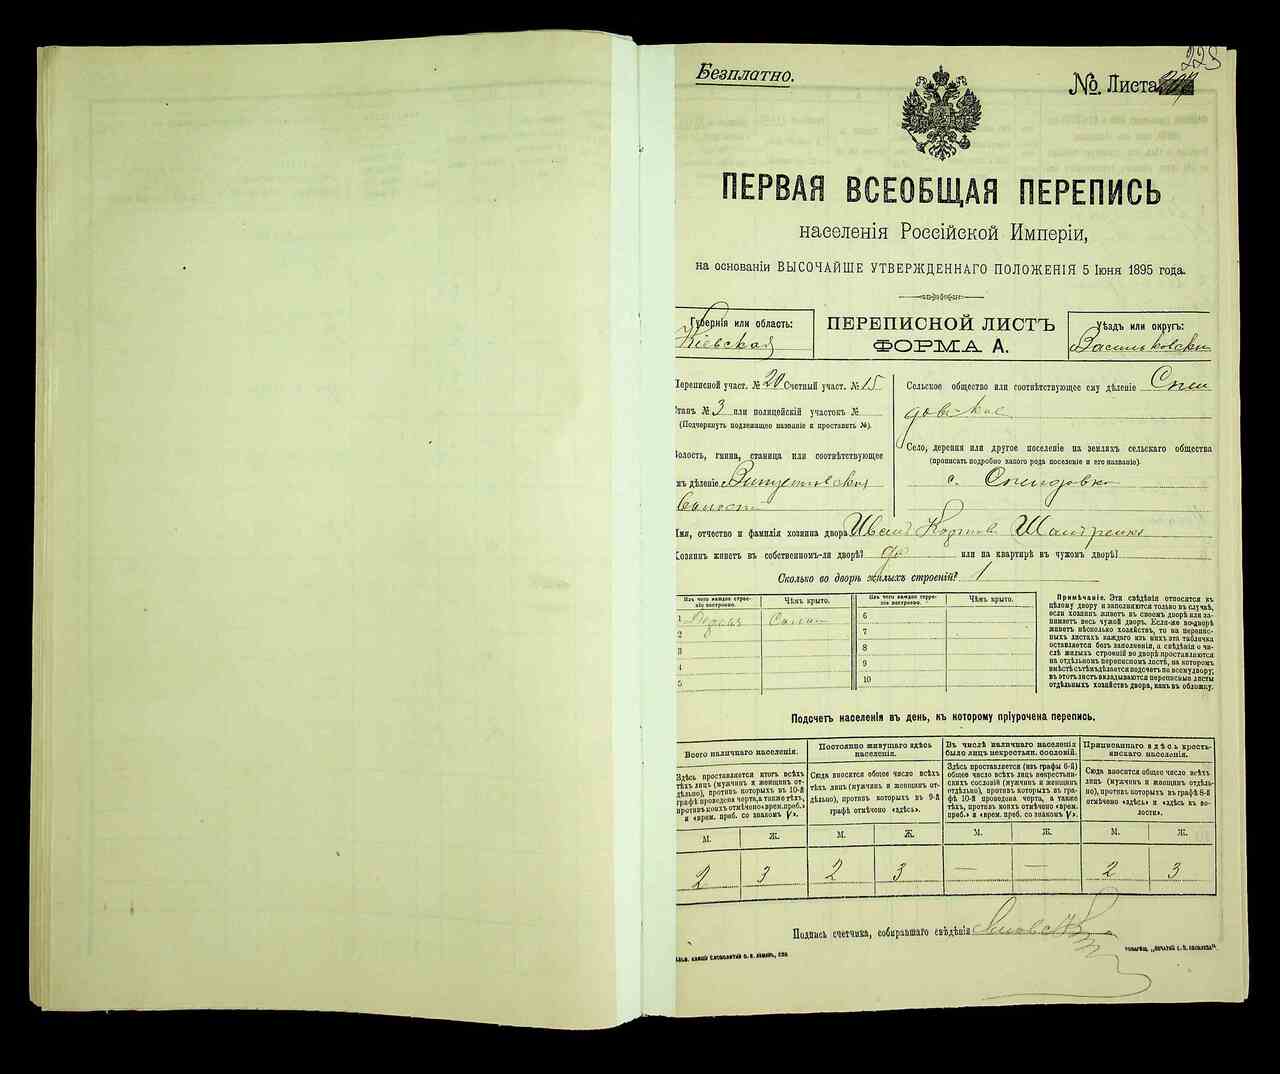 225
Безплатно.
№. Листа
ПЕРВАЯ ВСЕОБЩАЯ ПЕРЕПИСЬ
населенія Россійской Имперіи,
на основаніи ВЫСОЧАЙШЕ УТВЕРЖДЕННАГО ПОЛОЖЕНІЯ 5 Іюня 1895 года.
Губернія или область:
Кіевская
ПЕРЕПИСНОЙ ЛИСТЪ
ФОРМА А.
Уѣздъ или округъ:
Васильковскі
Переписной участ. № 20 Счетный участ. № 15
Станъ № 3 или полицейскій участокъ №
(Подчеркнуть подлежащее названіе и проставить №).
Волость, гмина, станица или соотвѣтствующее
имъ дѣленіе
Сельское общество или соотвѣтствующее ему дѣленіе
Село, деревня или другое поселеніе на земляхъ сельскаго общества
(прописать подробно какого рода поселеніе и его названіе).
с.
Имя, отчество и фамилія хозяина двора Иванъ
Хозяинъ живетъ въ собственномъ-ли дворѣ? да или на квартирѣ въ чужомъ дворѣ?
Сколько во дворѣ жилыхъ строеній? 1
Изъ чего каждое строеніе построено.
Чѣмъ крыто.
Изъ чего каждое строеніе построено.
Чѣмъ крыто.
1
2
3
4
5
6
7
8
9
10
Примѣчаніе. Эти свѣдѣнія относятся къ
цѣлому двору и заполняются только въ случаѣ,
если хозяинъ живетъ въ своемъ дворѣ или занимаетъ
весь чужой дворъ. Если-же во дворѣ
живетъ нѣсколько хозяйствъ, то на переписныхъ
листахъ каждаго изъ нихъ эта табличка
оставляется безъ заполненія, а свѣдѣнія о числѣ
жилыхъ строеній во дворѣ проставляются
на отдѣльномъ переписномъ листѣ, на которомъ
вмѣстѣ съ тѣмъ дѣлается подсчетъ по всему двору;
въ этотъ листъ вкладываются переписные листы
отдѣльныхъ хозяйствъ двора, какъ въ обложку.
Подсчетъ населенія въ день, къ которому пріурочена перепись.
Всего наличнаго населенія.
Здѣсь проставляется итогъ всѣхъ
тѣхъ лицъ (мужчинъ и женщинъ отдѣльно),
противъ которыхъ въ 10-й
графѣ проведена черта, а также тѣхъ,
противъ коихъ отмѣчено «врем. преб.»
и «врем. преб. со знакомъ V».
Постоянно живущаго здѣсь
населенія.
Сюда вносится общее число всѣхъ
тѣхъ лицъ (мужчинъ и женщинъ отдѣльно),
противъ которыхъ въ 9-й
графѣ отмѣчено «здѣсь».
Въ числѣ наличнаго населенія
было лицъ некрестьян. сословій.
Здѣсь проставляется (изъ графы 6-й)
общее число всѣхъ лицъ некрестьянскихъ
сословій (мужчинъ и женщинъ
отдѣльно), противъ которыхъ въ графѣ
10-й проведена черта, а также
тѣхъ, противъ коихъ отмѣчено «врем.
преб.» и «врем. преб. со знакомъ V».
Приписаннаго здѣсь крестьянскаго
населенія.
Сюда вносится общее число всѣхъ
лицъ (мужчинъ и женщинъ отдѣльно),
противъ которыхъ въ графѣ 8-й
отмѣчено «здѣсь» и «здѣсь къ волости».
М. Ж. М. Ж. М. Ж. М. Ж.
2 3 2 3 — — 2 3
Подпись счетчика, собиравшаго свѣдѣнія